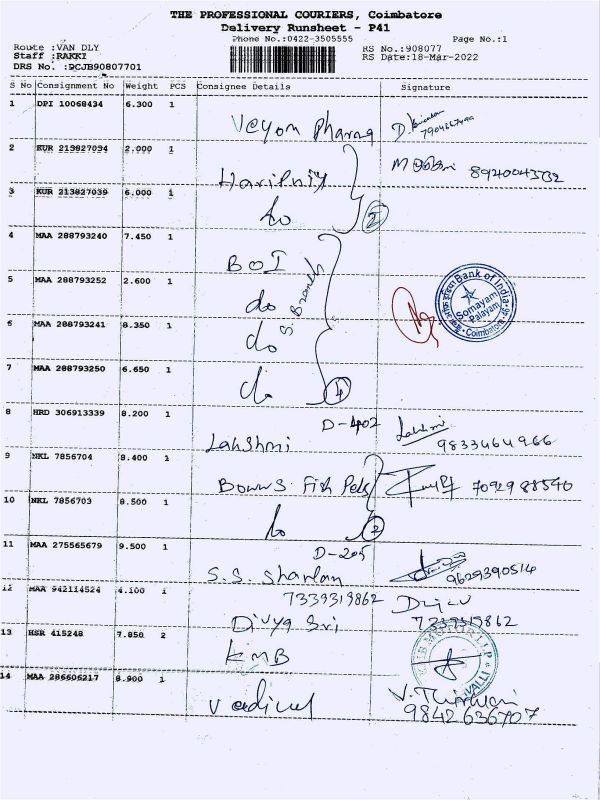 THE PROFESSIONAL COURIERS, Coimbatore
Delivery Runsheet - P41
Phone No.:0422-3505555
Page No.:1
Route :VAN DLY
RS No.:908077
Staff :RAKKI
RS Date:18-Mar-2022
DRS No. :PCJB90807701
S No Consignment No Weight PCS Consignee Details Signature
1 DPI 10068434 6.300 1
Veyon Pharma
2 KUR 213827034 2.000 1
Haripriy 8940043732
3 KUR 213827039 6.000 1
do 2
4 MAA 288793240 7.450 1
BOI
S. Branch
5 MAA 288793252 2.600 1
do
Bank of India
Somayam
Palayam
Coimbatore
6 MAA 288793241 8.350 1
do
7 MAA 288793250 6.650 1
do 4
8 HRD 306913339 8.200 1
D-402
Lakshmi Lakshmi
9833464966
9 NKL 7856704 8.400 1
Fish Pets 7092988540
10 NKL 7856703 8.500 1
do 2
11 MAA 275565679 9.500 1
D-205
S.S. Sharlan 9629390514
12 MAA 942114524 4.100 1
7339319862
Divya Sri 7339319862
13 HSR 415248 7.850 2
KMB
14 MAA 286606217 8.900 1
9842636707